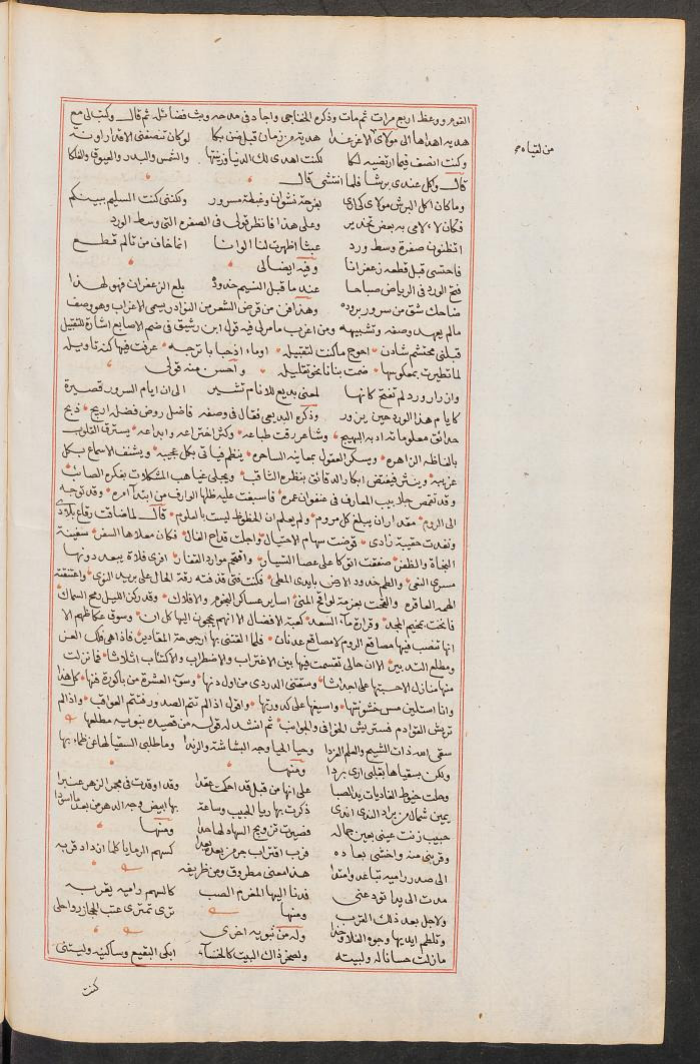 القوم ووعظ اربع مرات ثم مات وذكره الخفاجي واجاد في مدحه وبث فضائله ثم قال وكتب لي مع
هديه اهداها الى مولاي الاعز هدية من زمان قبل ضن بكا لو كان تنصفني الاقدار اونة
وكنت انصف فيما ارتضيه لكا لكنت اهدي لك الدنيا وزينتها والشمس والبدر والعيوق والفلكا
قال وكل عندي برشا فلما انتشى قال
وما كان اكل البرش مولاي لفرحة نشوان وغبطة مسرور ولكنني كنت السليم ببينكم
فكان لالامي به بعض تخدير وعلى هذا فانظر قولي في الصفره التي وسط الورد
اتظنون صفرة وسط ورد عبثا اظهرت لنا الوانا انما خاف من تالم قطع
فاحتسى قبل قطعه زعفرانا وفيه ايضا لي
فتح الورد في الرياض صباحا عندما قبل النسيم خدوده بلع الزعفران فهو لهذا
ضاحك شق من سرور بروده وهذا فن من قرض الشعر من النوادر يسمى الاغراب وهو وصف
مالم يعهد وصفه وتشبيهه ومن اغرب ما مر لي فيه قول ابن رشيق في ضم الاصابع اشارة للتقبيل
قبلني محتشم شادن احوج ما كنت لتقبيله اوماء اذ حيا باترجه عرفت فيها كنه تاويله
لما تطيرت بمعكوسها ضمت بنانا نحو تقليله واحسن منه قولي
وان زار ورد لم تفتح كانها لمعنى بديع للانام تشير الى ان ايام السرور قصيرة
كايام هذا الورد حين يزور وذكره البديعي فقال في وصفه فاضل روض فضله اريج ذبح
حدائق معلوماته ادبه البهيج وشاعر رقت طباعه وكثر اختراعه وابداعه يسترق القلوب
بالفاظه الزاهره ويسكر العقول بمعانيه الساحره ينظم فياتي بكل عجيبه ويشنف الاسماع بكل
غريبه وينثر فيفتض ابكار الدقائق بنظره الثاقب ويجلي غياهب المشكلات بفكره الصائب
وقد تقمص جلابيب المعارف في عنفوان عمره فاسبغت عليه ظلها الوارف من ابتدآ امره وقد توجه
الى الروم مقدار ان يبلغ كل مروم ولم يعلم ان الحظوظ ليست بالعلوم قال لما ضاقت رقاع بلادي
ونفدت حقيبة زادي فوضت سهام الاحتيال واجلت قداح الفال فكان معلاها السفر سفينة
النجاة والظفر
مسرى النعي والطم خدود الارض بايدي المطي فكنت فتى قذفته رقة الحال على بريد النوى واعتنقته
الهمه العاقره والقحت بعزيمة لواقح المنى اساير عساكر النجوم والافلاك وقد ركن الليل رمح السماك
فانخت بمخيم المجد وقرارة مآء السعد كعبة الافضال الا انهم يحجون اليها كل ان وسوق عكاظهم الا
انها تنصب فيها مصاقع الروم لا مصاقع عدنان فلما القتني بها ارجوحة المقادير فاذا هي فلك العز
ومطلع التدبير الا ان حالي تقسمت فيها بين الاغتراب والاضطراب والاكتئاب اثلاثا فما نزلت
منها منازل الا حسبتها علي اجداثا وسقتني الدردي من اول دنها وسوء العشرة من باكورة فنها كل هذا
وانا استلين مس خشونتها واسيغها على كدورتها واقول اذا لم تتم الصدور فتتم العواقب واذا لم
تريش القوادم فستريش الخوافي والجوانب ثم انشد له قوله من قصيده نبويه مطلعها
سقى الله ذات الشيح والعلم الفردا وحيا الحيا وجه البشاشة والرندا وما طلبي السقيا لها عن ظماء بها
ولكن بسقياها بقلبي ارى بردا ومنها
وحلت خيوط الغاديات يد الصبا على انها من قبل قد احكمت عقدا وقد اوقدت في مجمر الزهر عنبرا
يمين شمال من براد الندى اندى ذكرت بها ريا الحبيب وساعة بها ابيض وجه الدهر من بعد ما اسودا
حبيب زنت عيني بعين جماله فصيرت تزويج السهاد لها حدا ومنها
وقربني منه واخشى بعاده فرب اقتراب جر من بعده بعدا كسهم الرمايا كلما ازداد قربه
الى صدر راميه تباعد وامتدا هذا معنى مطروق ومن ظريفه
مدت الى يدا تودعني فدنا اليها المغرم الصب كالسهم راميه يقربه
ولاجل بعد ذلك القرب ومنها ترى تمترى عتب الحجاز رواحلي
وتلطم ايديها وجوه الفلا وخدا وله من نبويه اخرى
مازلت حسانا له ولبيته ولصخر ذاك البيت كالخنسآء ابكي البقيع وساكنيه وليتني
كنت
من لقياه صح